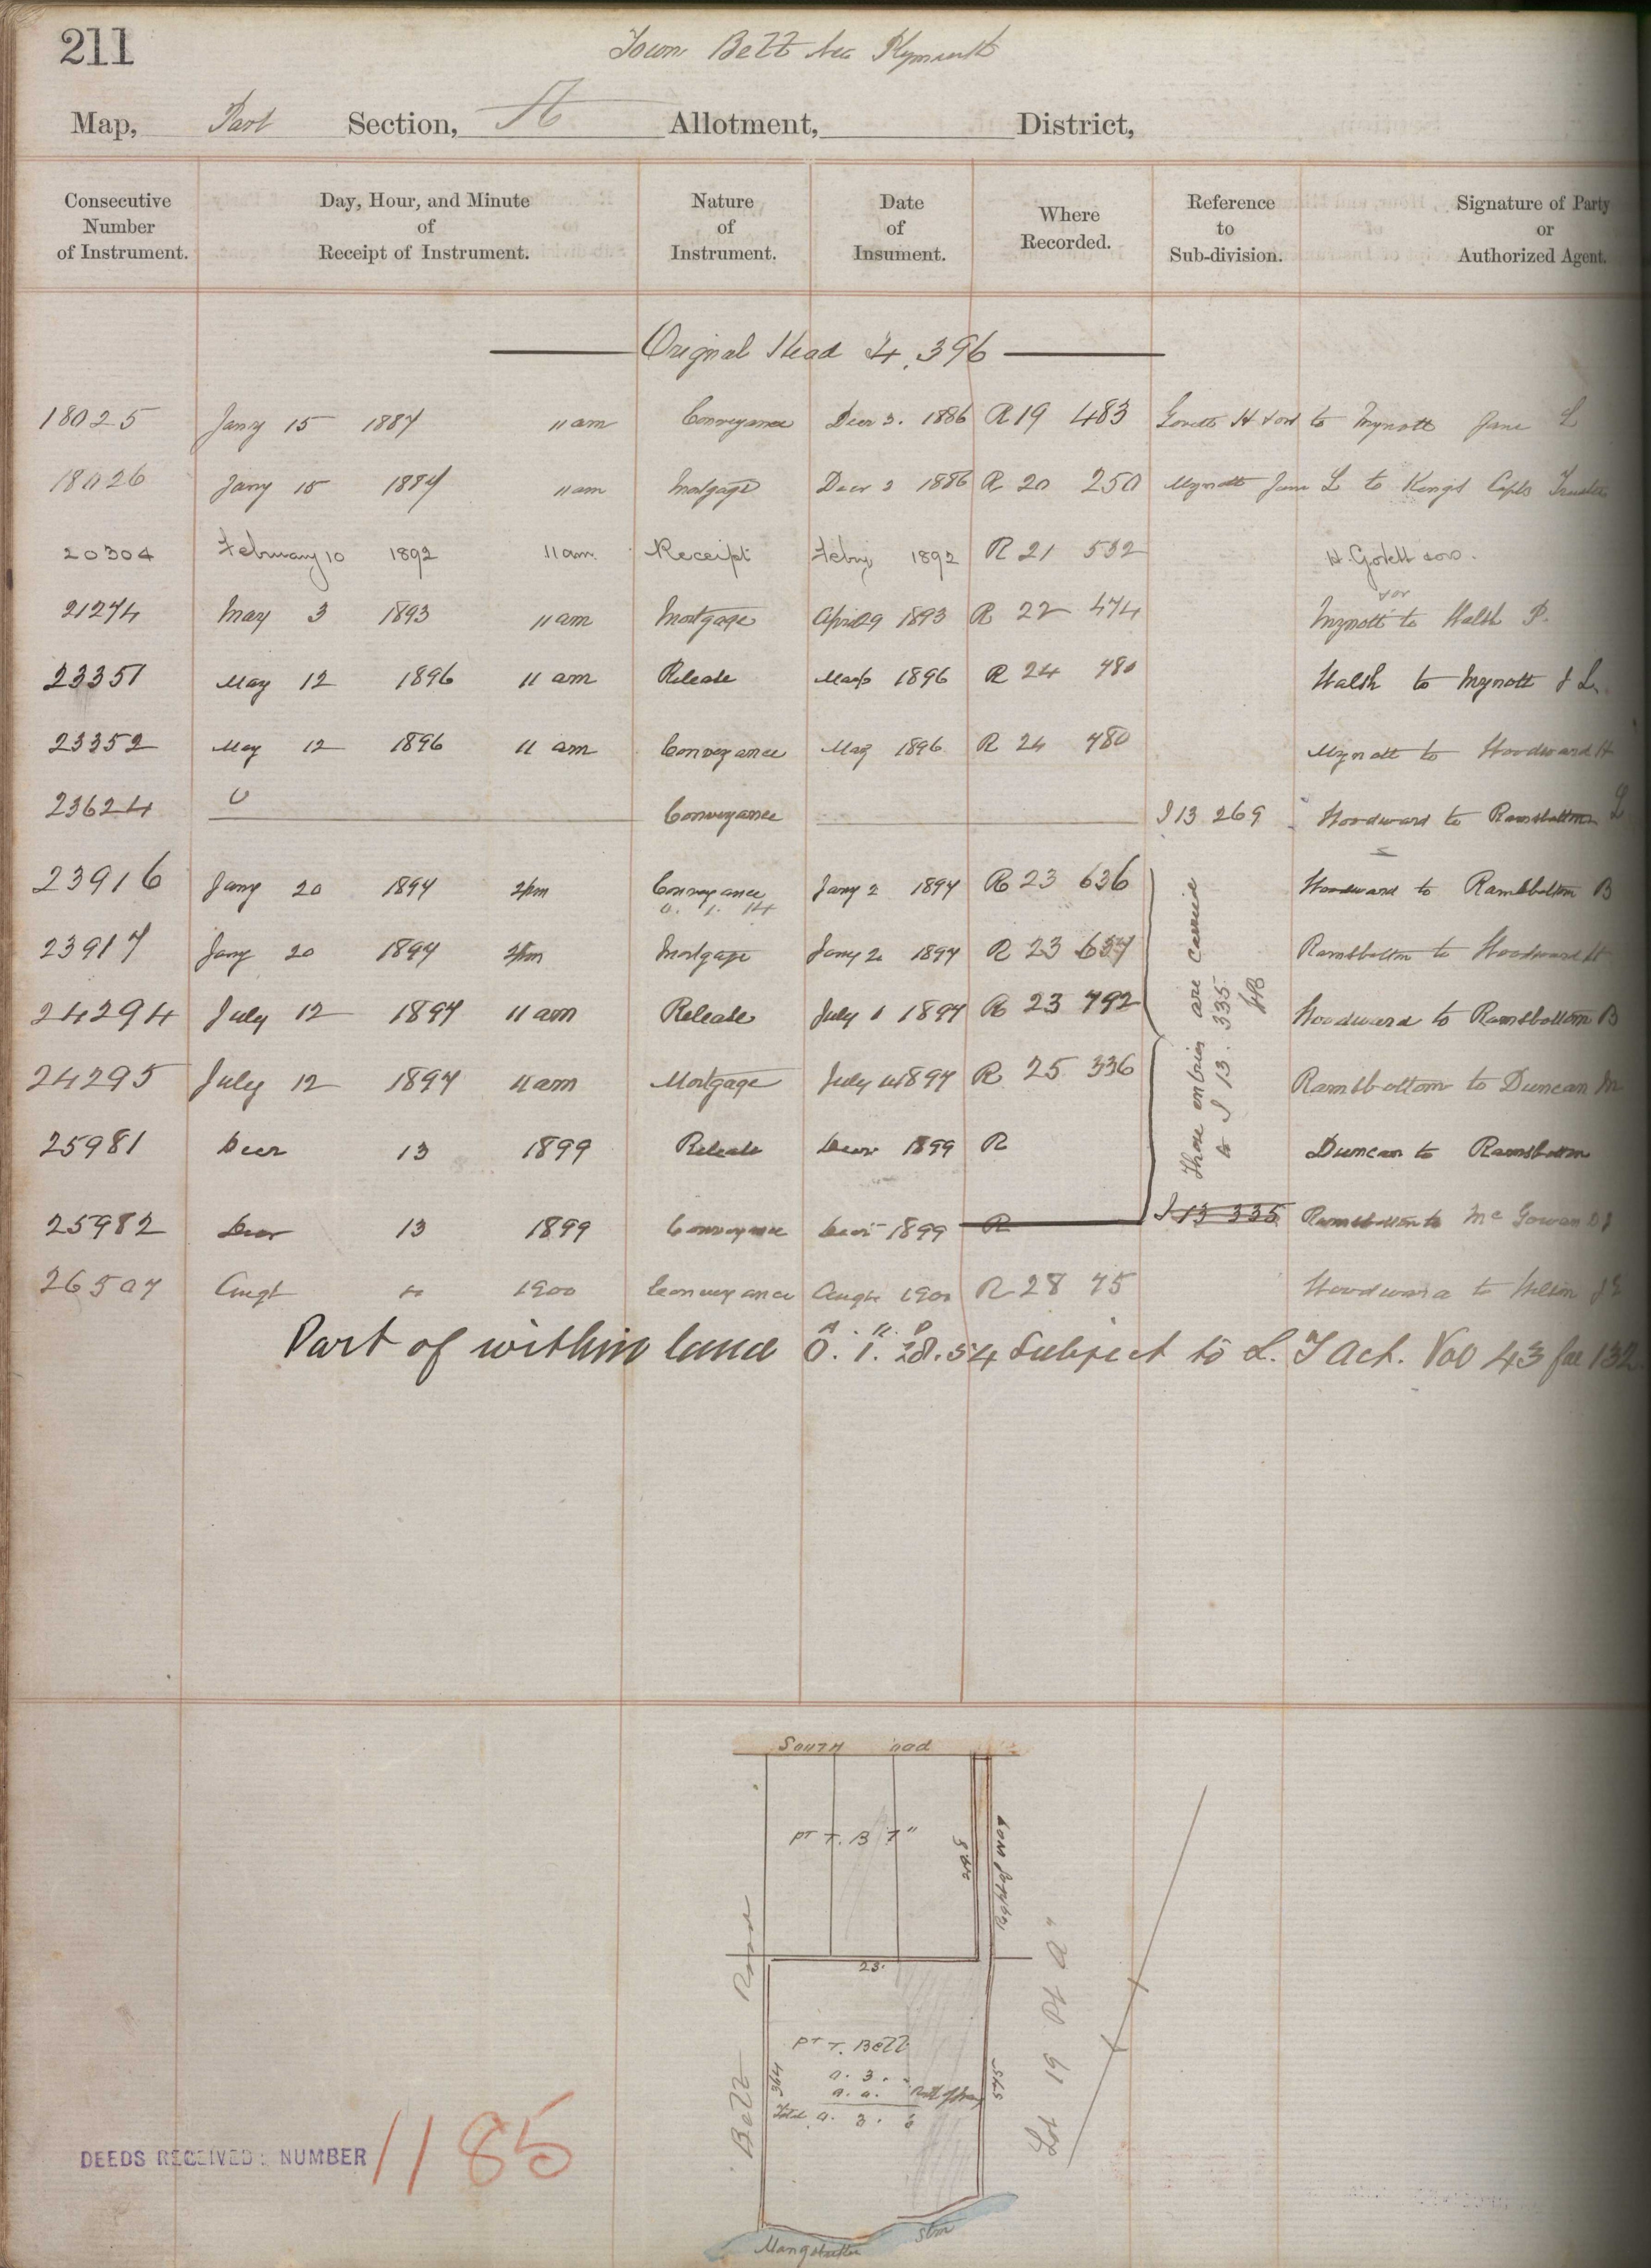 211
Town Belt New Plymouth
Map, Part Section, A Allotment, District,
Consecutive Number of Instrument. Day, Hour, and Minute of Receipt of Instrument. Nature of Instrument. Date of Insument. Where Recorded. Reference to Sub-division. Signature of Party or Authorized Agent.
Original Head I4.396
18025 Jany 15 1887 11 am Conveyance Decr 3. 1886 R 19 483 to Mynott Jane L
18026 Jany 15 1887 11 am Mortgage Decr 3 1886 R 20 250 Mynott Jane L to Kings
20304 February 10 1892 11 am. Receipt Feby 1892 R 21 532
21274 May 3 1893 11 am Mortgage April 29 1893 R 22 474 Mynott to Walsh P.
23351 May 12 1896 11 am Release May 6 1896 R 24 480 Walsh to Mynott J L.
23352 May 12 1896 11 am Conveyance May 1896 R 24 480 Mynott to Woodward H
23624 Conveyance I 13 269 Woodward to Ramsbottom
23916 Jany 20 1897 2pm Conveyance Jany 2 1897 R 23 636 Woodward to Ramsbottom B
0. 1. 14
23917 Jany 20 1897 2pm Mortgage Jany 2 1897 R 23 637 Ramsbottom to Woodward H
24294 July 12 1897 11 am Release July 1 1897 R 23 792 Woodward to Ramsbottom B
24295 July 12 1897 11 am Mortgage July 1897 R 25 336 Ramsbottom to Duncan M
25981 Decr 13 1899 Release Decr 1899 R Duncan to Ramsbottom
25982 Decr 13 1899 Conveyance Decr 1899 R I 13 335 Ramsbottom to McGowan
26507 Augt 1900 Conveyance Augt 1900 R 28 75 Woodward to Wilson
These entries are carried
to I 13. 335
A. R. P
Part of within land 0. 1. 28.54 Subject to L. T Act. Vol 43 fol 132
South oad
PT T. B 7"
Belt Road
25.
PT T. Belt
0. 3.
Total 0. 3. 6
364
545
Lot 19 Pt A"
Stm
DEEDS RECEIVED: NUMBER 1185